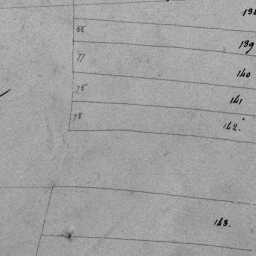 138
66
139
77
140
75
141
78
142.
143.